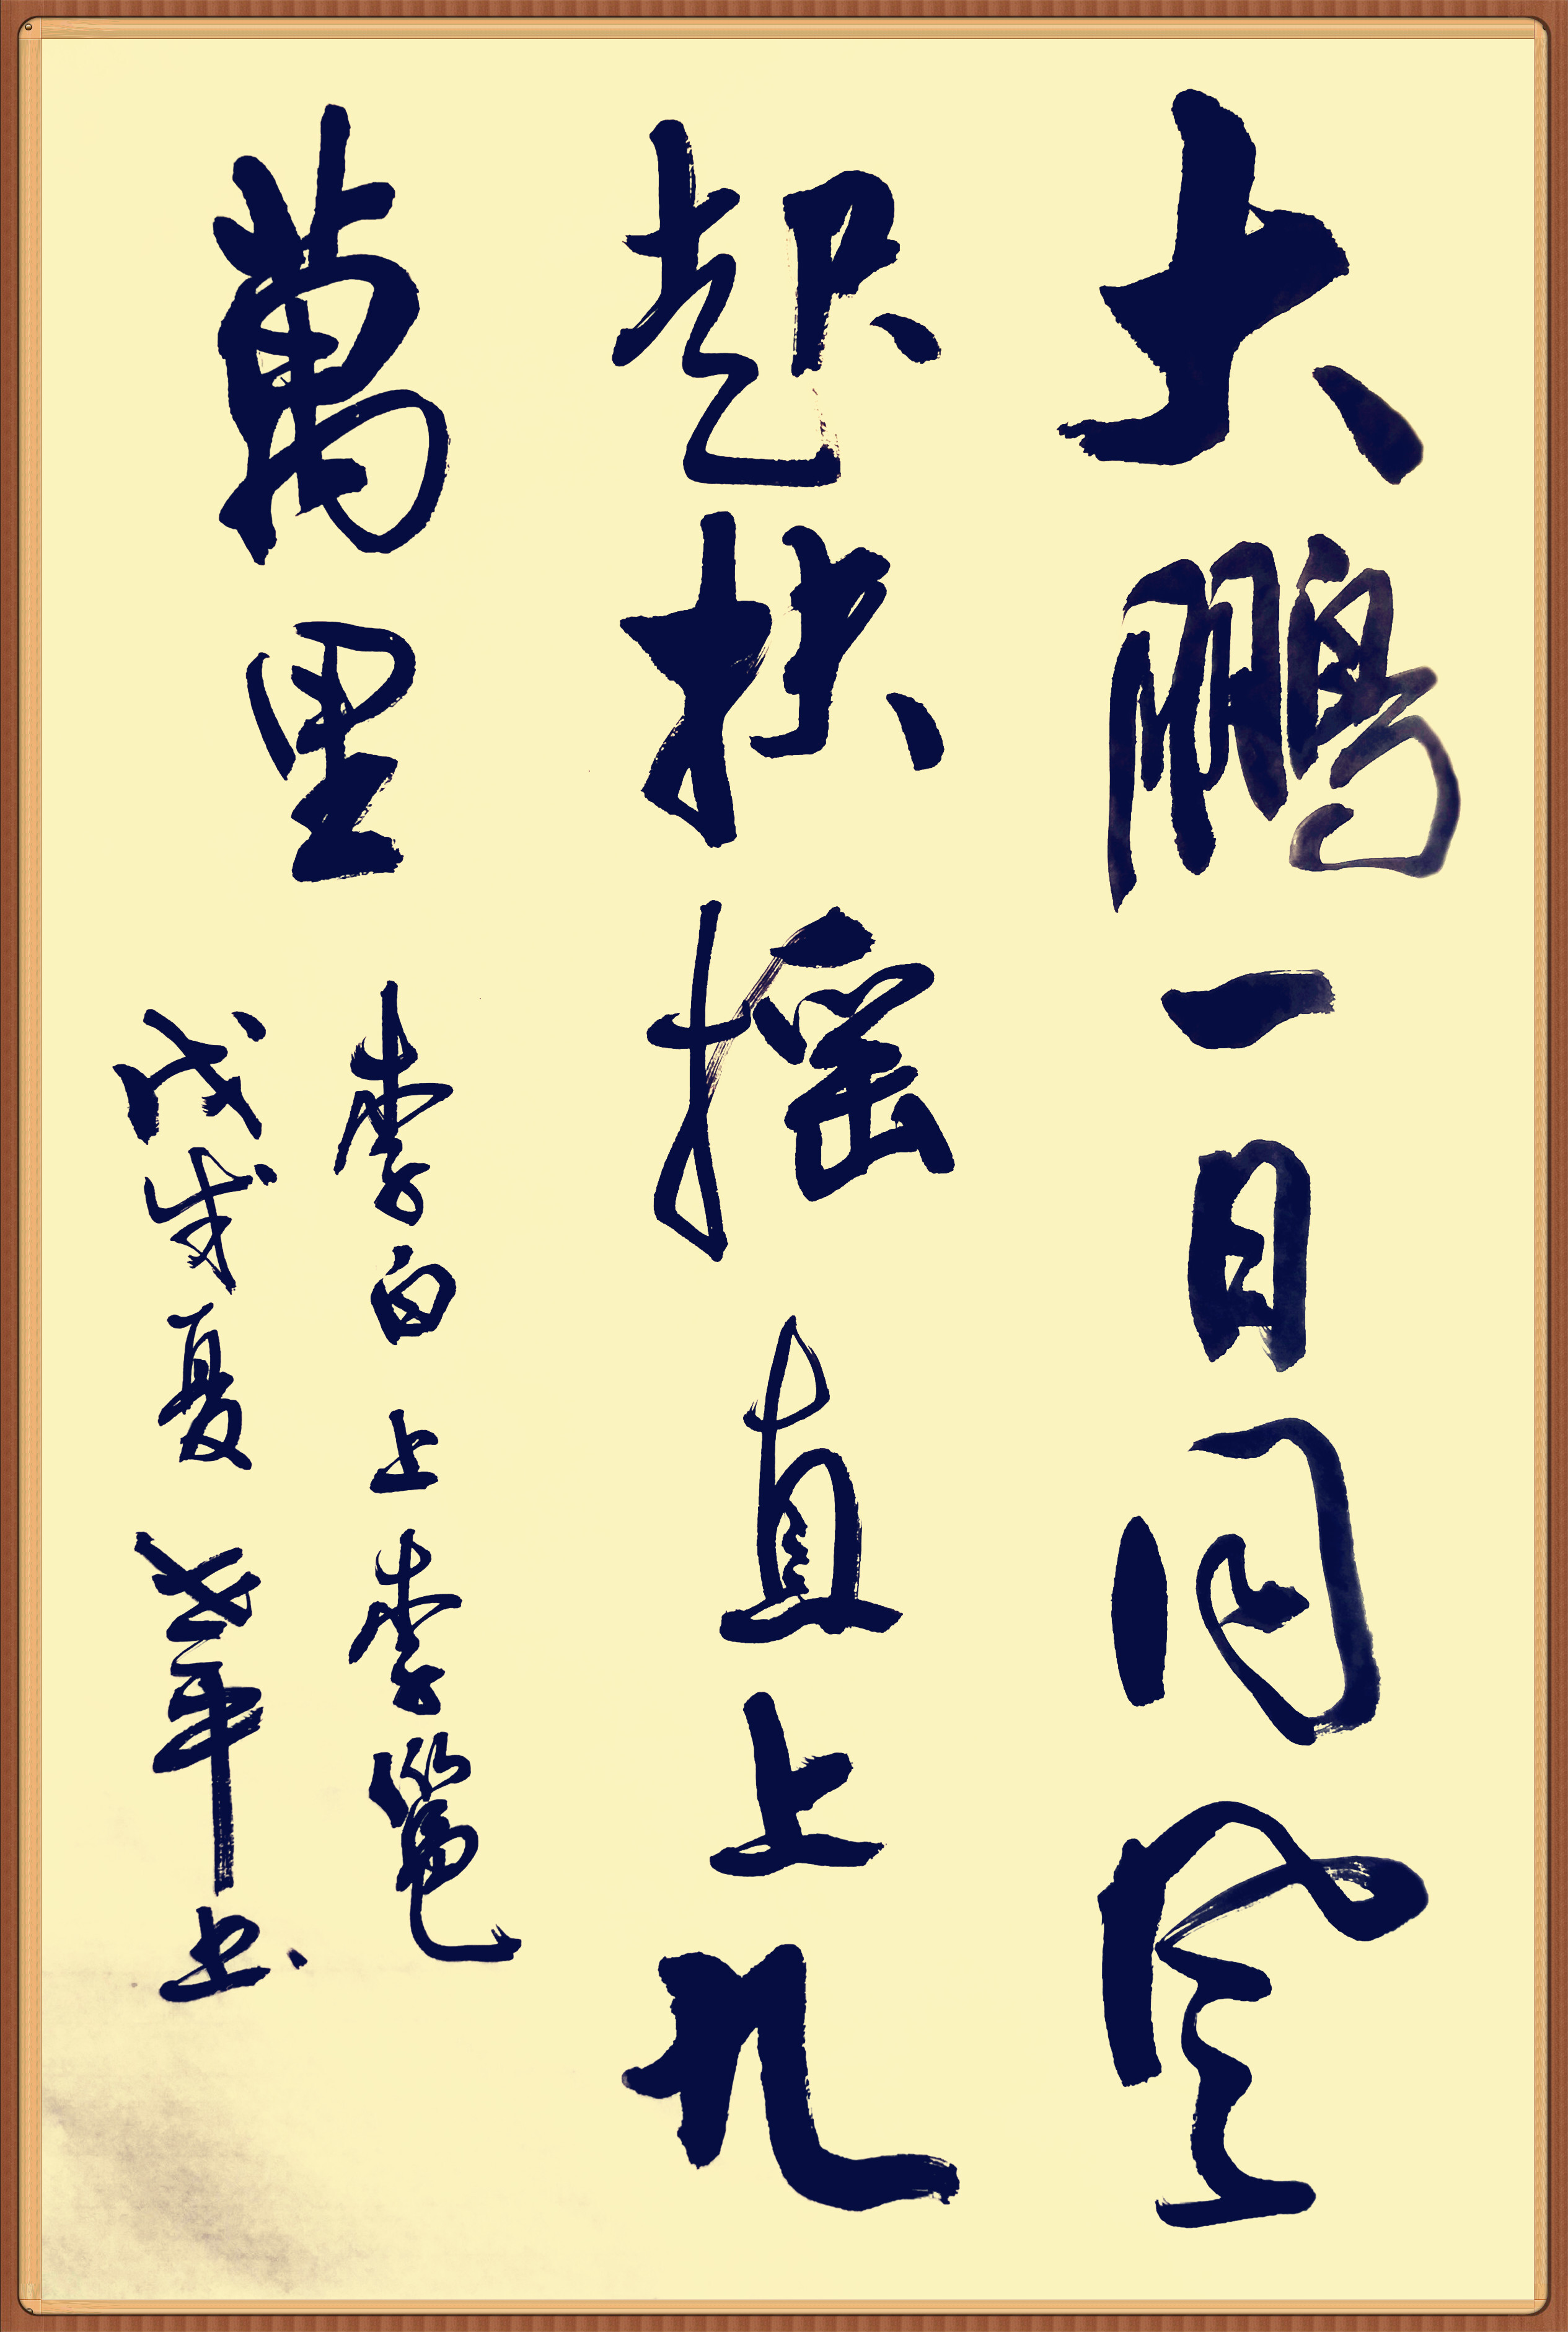 大鹏一日同风
起扶摇直上九
萬里
李白上李邕
戊戌夏
书